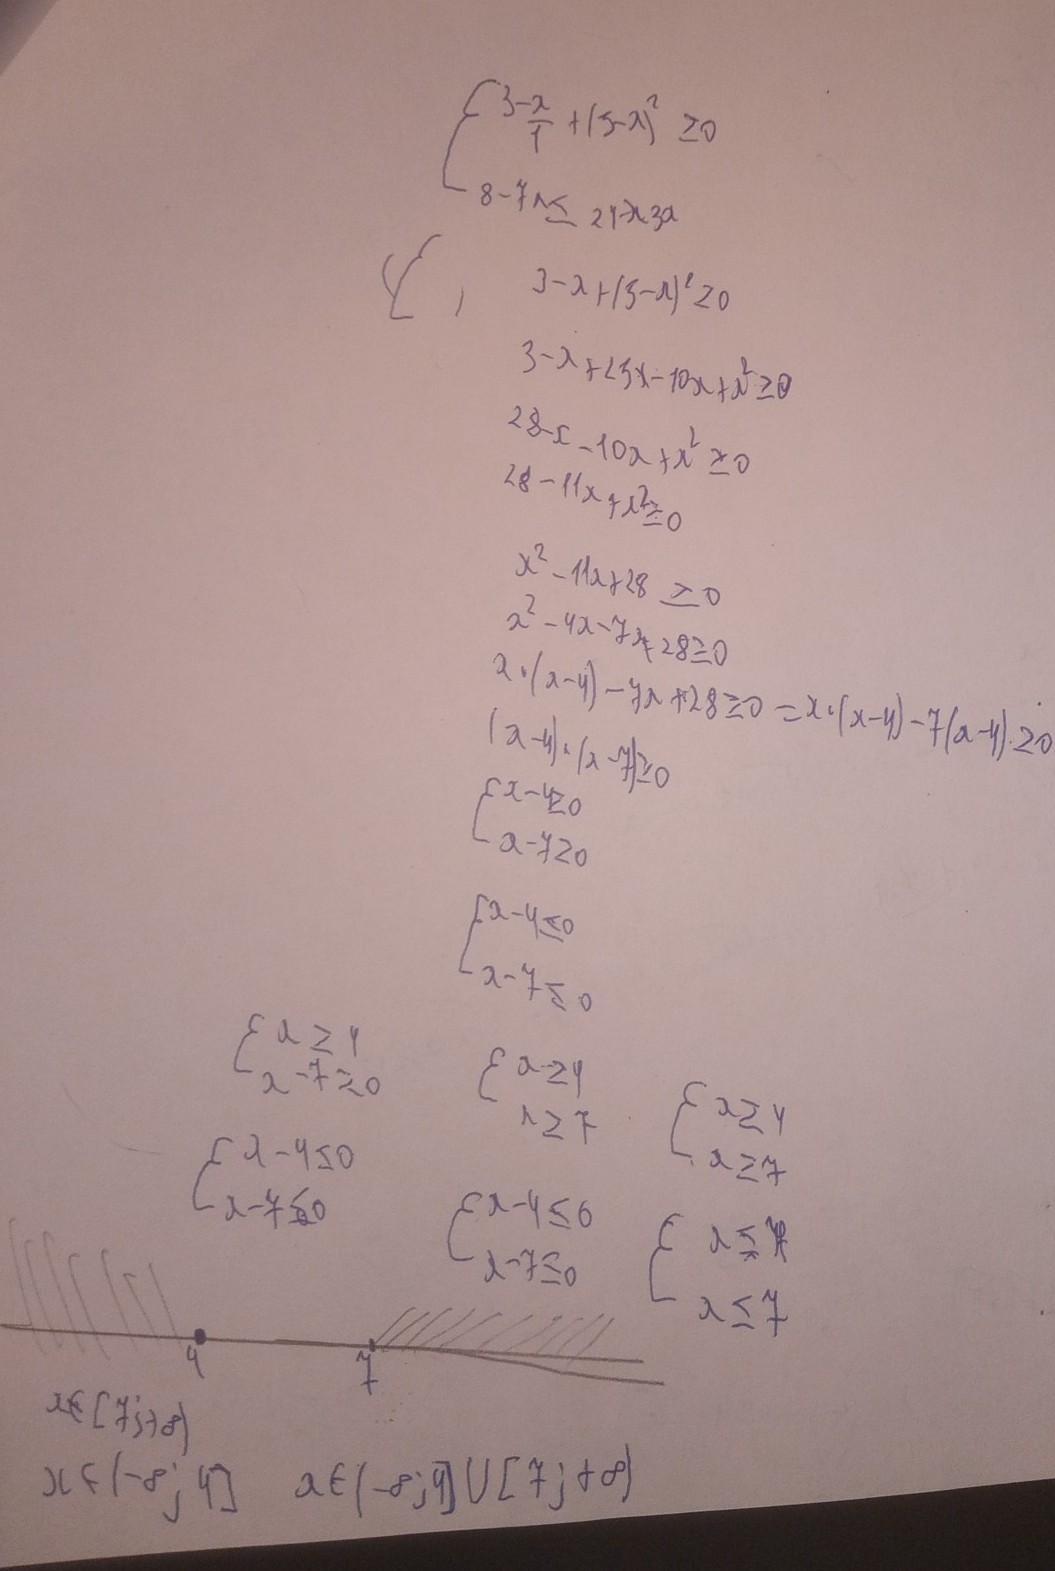 { 3-x/1 + (5-x)² ≥0
8-7x ≤
{ 3-x+(5-x)² ≥0
3-x+25x-10x+x² ≥0
28-x-10x+x² ≥0
28-11x+x² ≥0
x²-11x+28 ≥0
x²-4x-7x+28≥0
x·(x-4)-7x+28≥0 = x·(x-4)-7(x-4)≥0
(x-4)·(x-7)≥0
{ x-4≥0
x-7≥0
{ x-4≤0
x-7≤0
{ x≥4 { x≥4 { x≥4
x-7≥0 x≥7 x≥7
{ x-4≤0 { x-4≤0 { x≤
x-7≤0 x-7≤0 x≤7
4 7
x∈[7;+∞)
x∈(-∞;4] x∈(-∞;4]∪[7;+∞)